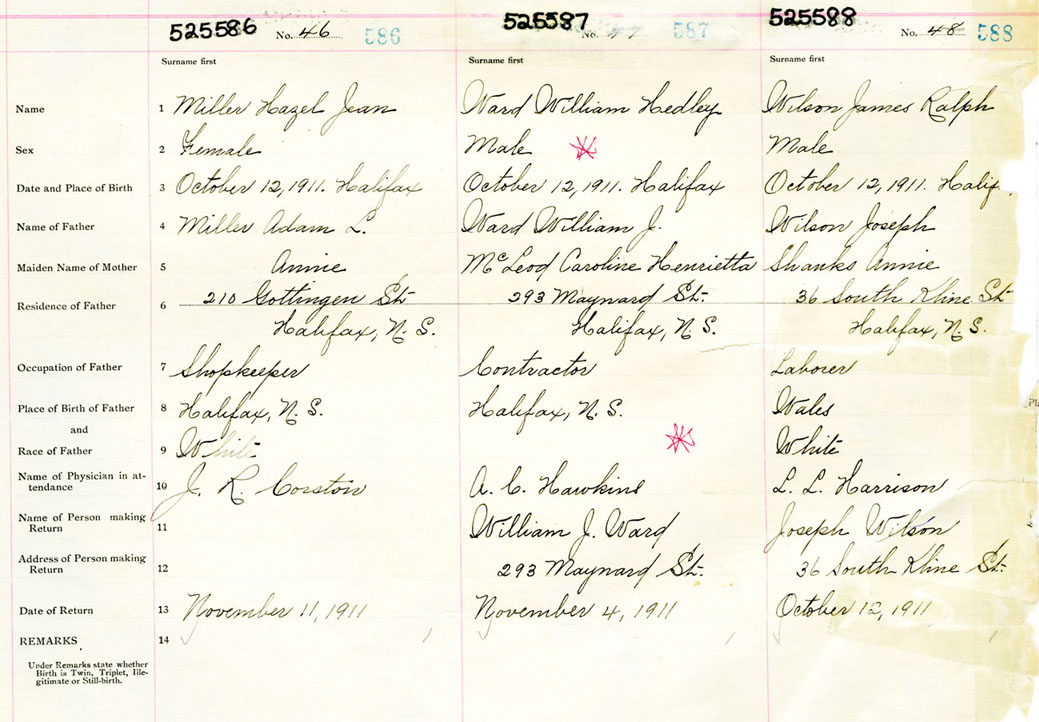 525586 No. 46 586 525587 No. 47 587 525588 No. 48 588
Surname first Surname first Surname first
Name 1 Miller Hazel Jean Ward William Hedley Wilson James Ralph
Sex 2 Female Male Male
Date and Place of Birth 3 October 12, 1911. Halifax October 12, 1911. Halifax October 12, 1911. Halif
Name of Father 4 Miller Adam L. Ward William J. Wilson Joseph
Maiden Name of Mother 5 Annie McLeod Caroline Henrietta Shanks Annie
Residence of Father 6 210 Gottingen St. 293 Maynard St. 36 South Kline St
Halifax, N. S. Halifax, N. S. Halifax, N. S.
Occupation of Father 7 Shopkeeper Contractor Laborer
Place of Birth of Father 8 Halifax, N. S. Halifax, N. S. Wales
and
Race of Father 9 White White
Name of Physician in at-
tendance 10 J. R. Corston A. C. Hawkins L. L. Harrison
Name of Person making
Return 11 William J. Ward Joseph Wilson
Address of Person making
Return 12 293 Maynard St. 36 South Kline St.
Date of Return 13 November 11, 1911 November 4, 1911 October 12, 1911
REMARKS 14
Under Remarks state whether
Birth is Twin, Triplet, Ille-
gitimate or Still-birth.